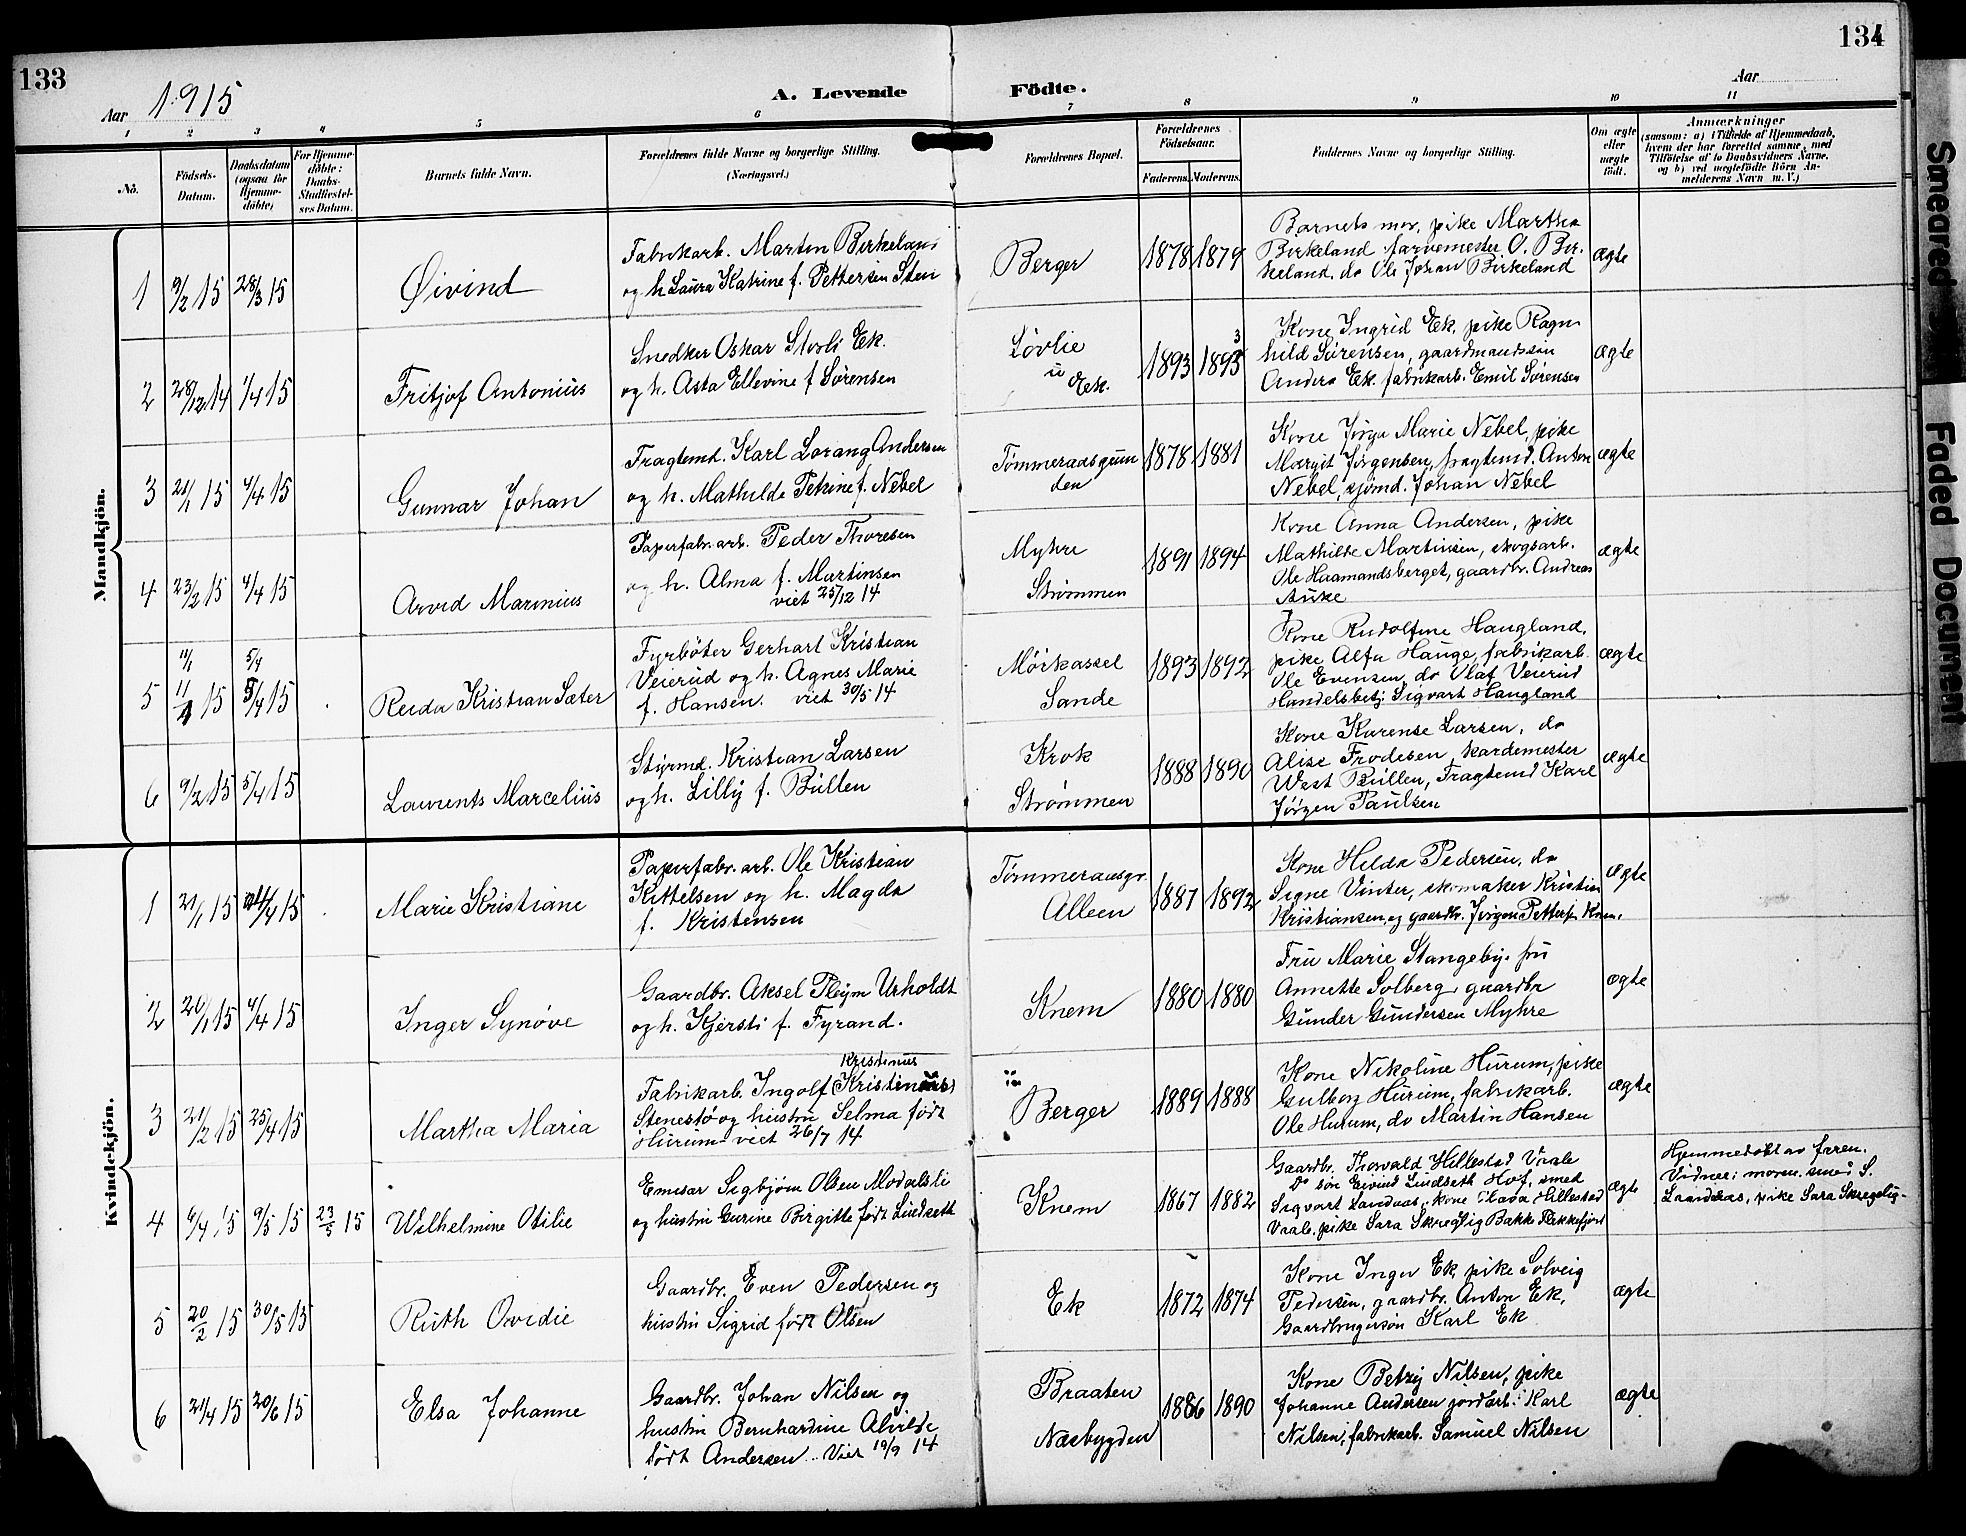 133
134
Aar 1915
A. Levende Födte.
Aar
1 2 3 4 5 6 7 8 9 10 11
No.
Födsels-
Datum.
Daabsdatum
(ogsaa för
Hjemme-
döbte)
For Hjemme-
döbte:
Daabs-
Stadfæstel-
ses Datum.
Barnets fulde Navn.
Forældrenes fulde Navne og borgerlige Stilling.
(Næringsvei.)
Forældrenes Bopæl.
Forældrenes
Födselsaar.
Faderens. Moderens.
Faddernes Navne og borgerlige Stilling.
Om ægte
eller
uægte
födt.
Anmærkninger
(saasom: a) i Tilfælde af Hjemmedaab,
hvem der har forrettet samme, med
Tilföielse af to Daabsvidners Navne,
og b) ved uægtefödte Börn An-
melderens Navn m. V.)
Mandkjön.
1 9/2 15 28/3 15 Øivind
Fabrikarb. Martin Birkeland
og h. Laura Katrine f. Pettersen Sten
Berger 1878 1879
Barnets mor, pike Martha
Birkeland farvemester O. Bir-
keland, do Ole Johan Birkeland
ægte
2 28/12 14 1/4 15 Fritjof Antonius
Snedker Oskar Storli Ek.
og h. Asta Ellevine f Sørensen
Løvlie
u Ek.
1893 1893 3
Kone Ingrid Ek, pike Ragn
hild Sørensen, gaardmandssøn
Anders Ek. fabrikarb. Emil Sørensen
ægte
3 21/1 15 4/4 15 Gunnar Johan
Fragtemd. Karl Lorang Andersen
og h. Mathilde Petrine f. Nebel
Tømmeraasgrun
den
1878 1881
Kone Jørga Marie Nebel, pike
Margit Jørgensen, fragtemd. Anton
Nebel, sjømd. Johan Nebel
ægte
4 23/2 15 4/4 15 Arvid Marinius
Papirfabr. arb. Peder Thoresen
og h. Alma f. Martinsen
viet 25/12 14
Myhre
Strømmen
1891 1894
Kone Anna Andersen, pike
Mathilde Martinsen, skogsarb.
Ole Haamandsberget, gaardbr. Andreas
Auke
ægte
11/1 5/4
5 11/1 15 5/4 15 Reidar Kristian Sæter
Fyrbøter Gerhart Kristian
Veierud og h. Agnes Marie
f. Hansen. viet 30/5 14
Mørkassel
Sande
1893 1892
Kone Rudolfine Haugland,
pike Alfa Hauge, fabrikarb.
Ole Evensen, do Olaf Veierud
Handelsbetj. Sigvart Haugland
ægte
6 9/2 15 5/4 15 Laurents Marcelius
Styrmd. Kristian Larsen
og h. Lilly f. Bullen
Krok
Strømmen
1888 1890
Kone Karense Larsen, do
Alise Frodesen, kardemester
West Bullen, Fragtemd Karl
Jørgen Paulsen
ægte
Kvindekjön.
1 21/1 15 4/4 15 Marie Kristiane
Papirfabr. arb. Ole Kristian
Kittelsen og h. Magda
f. Kristensen
Tømmeraasgr.
Alleen
1887 1892
Kone Hilda Pedersen, do
Signe Vinter, skomaker Kristian
Kristiansen og gaardbr. Jørgen Petters. Knem.
ægte
2 26/1 15 4/4 15 Inger Synøve
Gaardbr. Aksel Pleym Urholdt
og h. Kjersti f. Fyrand.
Knem 1880 1880
Fru Marie Stangeby, fru
Annette Solberg, gaardbr
Gunder Gundersen Myhre
ægte
3 21/2 15 25/4 15 Martha Maria
Kristinus
Fabrikarb. Ingolf (Kristinus)
Stenestø og hustru Selma født
Hurum viet 26/7 14
Berger 1889 1888
Kone Nikoline Hurum, pike
Gulborg Hurum, fabrikarb.
Ole Hurum, do Martin Hansen
ægte
4 6/4 15 9/5 15 23/5 15 Wilhelmine Otilie
Emisær Sigbjørn Olsen Modalsli
og hustru Gurine Birgitte født Lindseth
Knem 1867 1882
Gaardbr. Thorvald Hillestad Vaale
Do søn Eivind Lindseth Hof, smed
Sigvart Landaas, kone Hillestad
Vaale, pike Sara Skreglig Bakke Flekkefjord
ægte
Hjemmedøbt av faren.
Vidner: moren, smed S.
Landaas, pike Sara Skreglig.
5 20/2 15 30/5 15 Ruth Ovidie
Gaardbr. Even Pedersen og
hustru Sigrid født Olsen
Ek 1872 1874
Kone Inger Ek, pike Solveig
Pedersen, gaardbr. Anton Ek,
Gaardbrugersøn Karl Ek
ægte
6 21/4 15 20/6 15 Elsa Johanne
Gaardbr. Johan Nilsen og
hustru Bernhardine Alvilde
født Andersen. Viet 19/9 14
Braaten
Næsbygden
1886 1890
Kone Betzy Nilsen, pike
Johanne Andersen jordarb. Karl
Nilsen, fabrikarb. Samuel Nilsen
ægte
Smeared
Faded Document